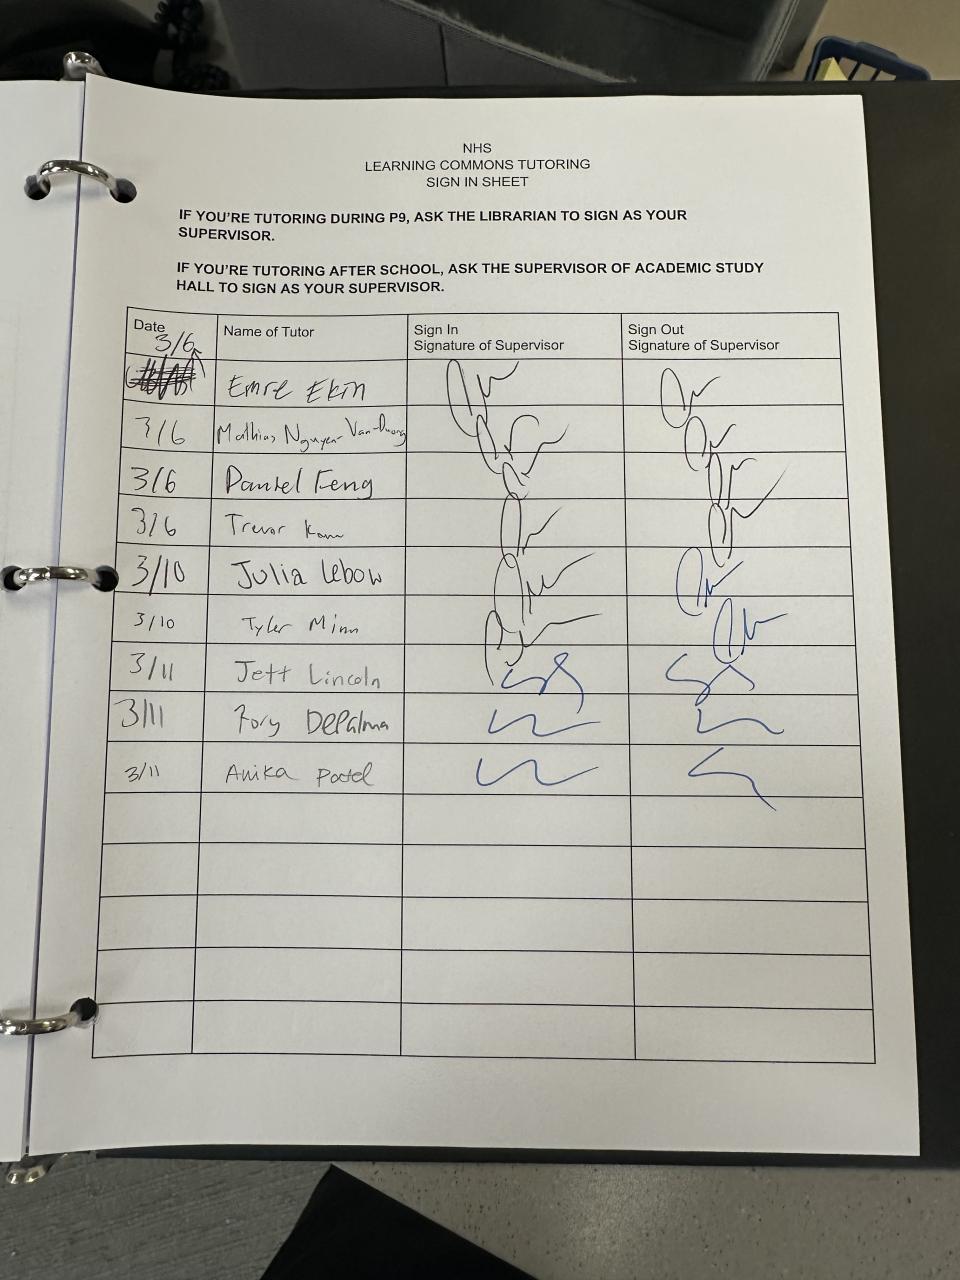 NHS
LEARNING COMMONS TUTORING
SIGN IN SHEET
IF YOU'RE TUTORING DURING P9, ASK THE LIBRARIAN TO SIGN AS YOUR
SUPERVISOR.
IF YOU'RE TUTORING AFTER SCHOOL, ASK THE SUPERVISOR OF ACADEMIC STUDY
HALL TO SIGN AS YOUR SUPERVISOR.
Date Name of Tutor Sign In Sign Out
Signature of Supervisor Signature of Supervisor
3/6 Emre Ekin
3/6 Mathias Nguyen-Van-Duong
3/6 Daniel Feng
3/6 Trevor
3/10 Julia Lebow
3/10 Tyler Minn
3/11 Jett Lincoln
3/11 Rory DePalma
3/11 Anika Patel